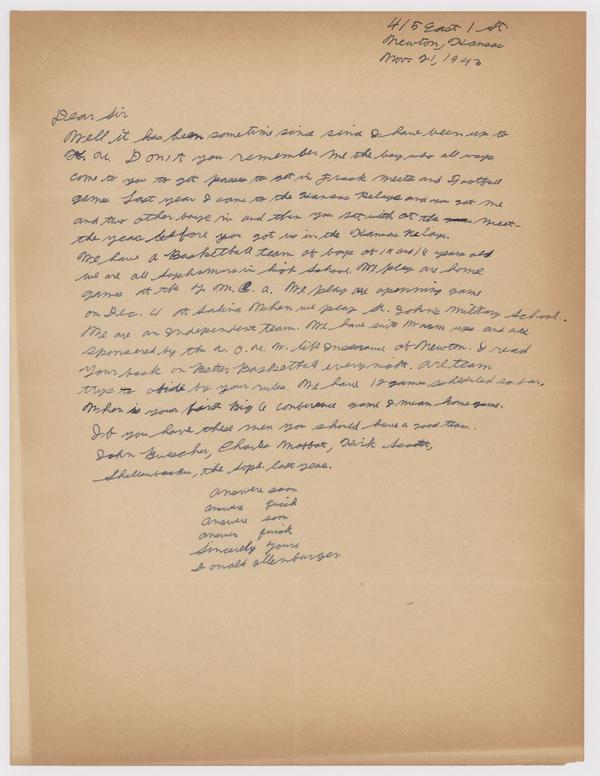 415 East 1 St.
Newton, Kansas
Nov. 21, 1943
Dear Sir
Well it has been sometime sind sind I have been up to
K. U. Don't you remember me the boy who all ways
come to you to get passes to get in Track meets and Football
games Last year I came to the Kansas Relays and you got me
and two other boys in and then you sat with at the meet.
the year before you got us in the Kansas Relays.
We have a Basketball team of boys of 15 and 16 years old
we are all Sophomors in high School. We play are home
games at the Y. M. C. A. We play are openning game
on Dec. 4 at Salina When we play St. John's Military School.
We are an Independent team. We have suits warm ups and are
sponsered by the A. O. U. W. life Insereance of Newton. I read
your book on Better Basketball every night. Are team
trys to abide by your rules. We have 12 games scheduled so far.
When is your first Big 6 conference game I mean home game.
If you have these men you should have a good team.
John Buescher, Charles Moffat, Kirk Scott,
Shellenbacker, the Soph. last year.
Answere soon
answere quick
Answere soon
answer quick
Sincerely Yours
Donald Ollenburger